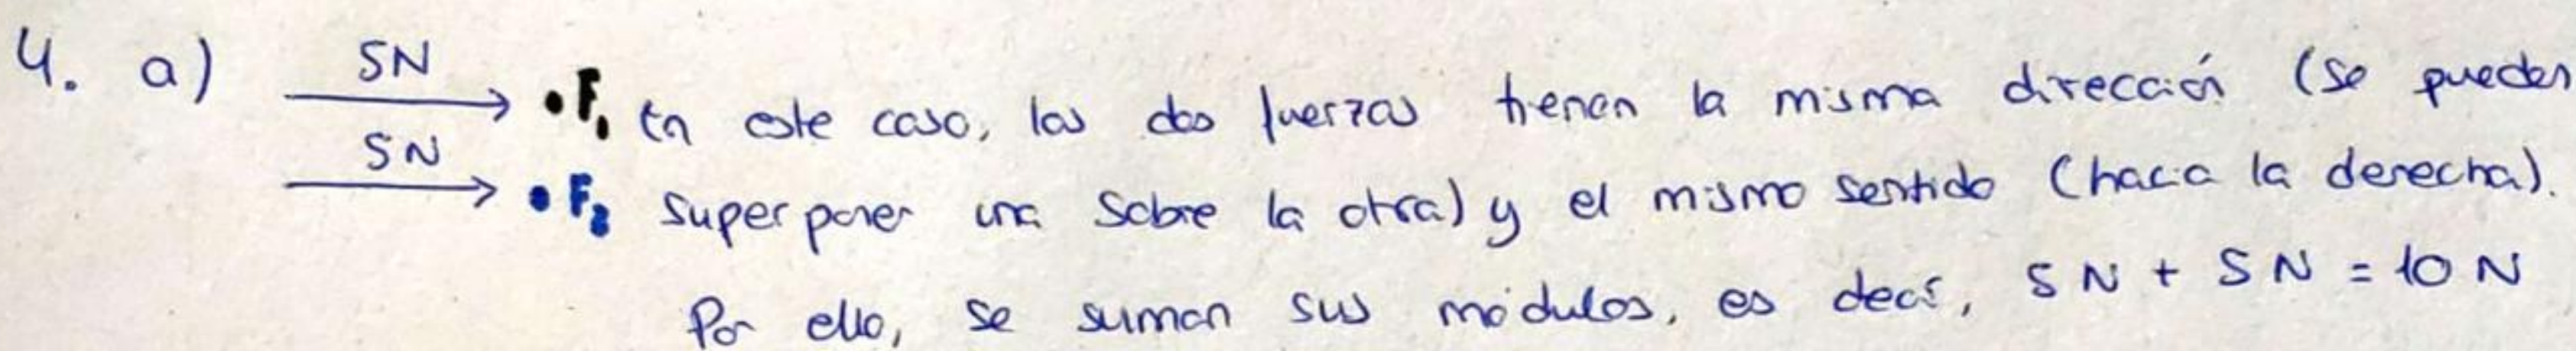 4. a) 5N • F₁ En este caso, las dos fuerzas tienen la misma dirección (se pueden
5N • F₂ superponer una sobre la otra) y el mismo sentido (hacia la derecha).
Por ello, se suman sus módulos, es decir, 5N + 5N = 10 N